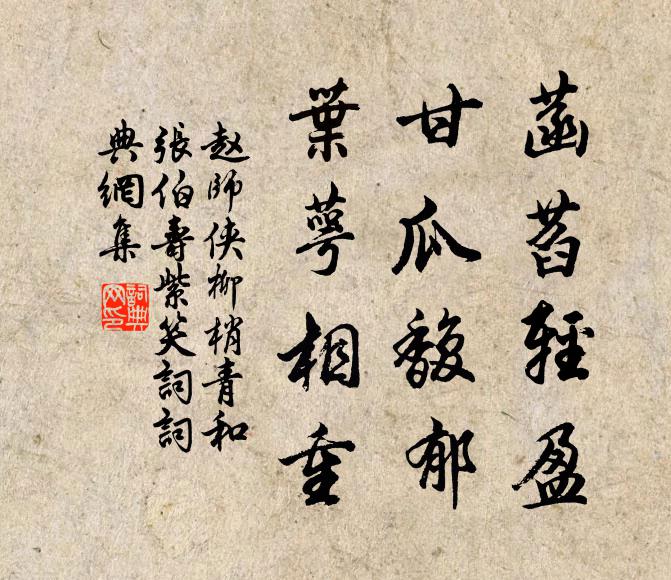 菡萏輕盈
甘瓜馥郁
葉萼相重
赵師侠柳梢青和
張伯壽紫笑詞詞
典網集
詞典
网印